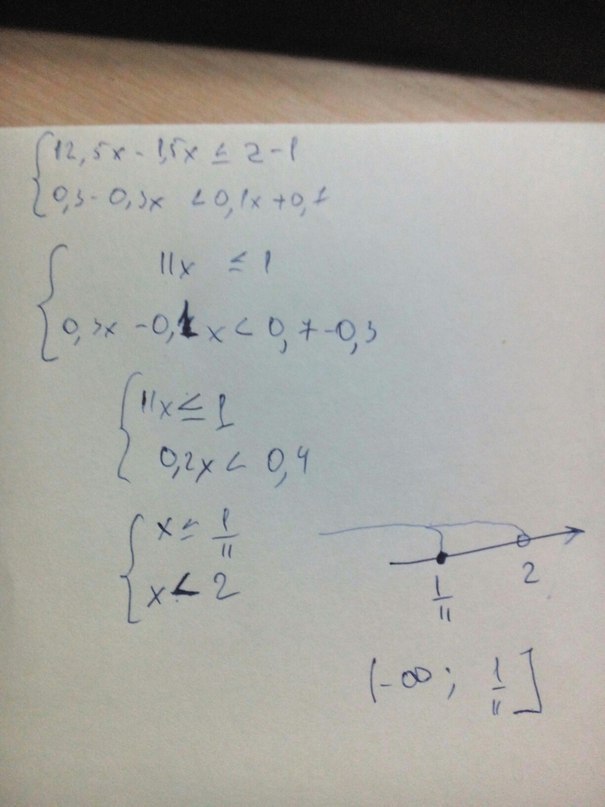 12,5x - 1,5x ≤ 2 - 1
0,3 - 0,3x < 0,1x + 0,7
11x ≤ 1
0,3x - 0,1x < 0,7 - 0,3
11x ≤ 1
0,2x < 0,4
x ≤ 1/11
x < 2
1/11 2
(-∞; 1/11]